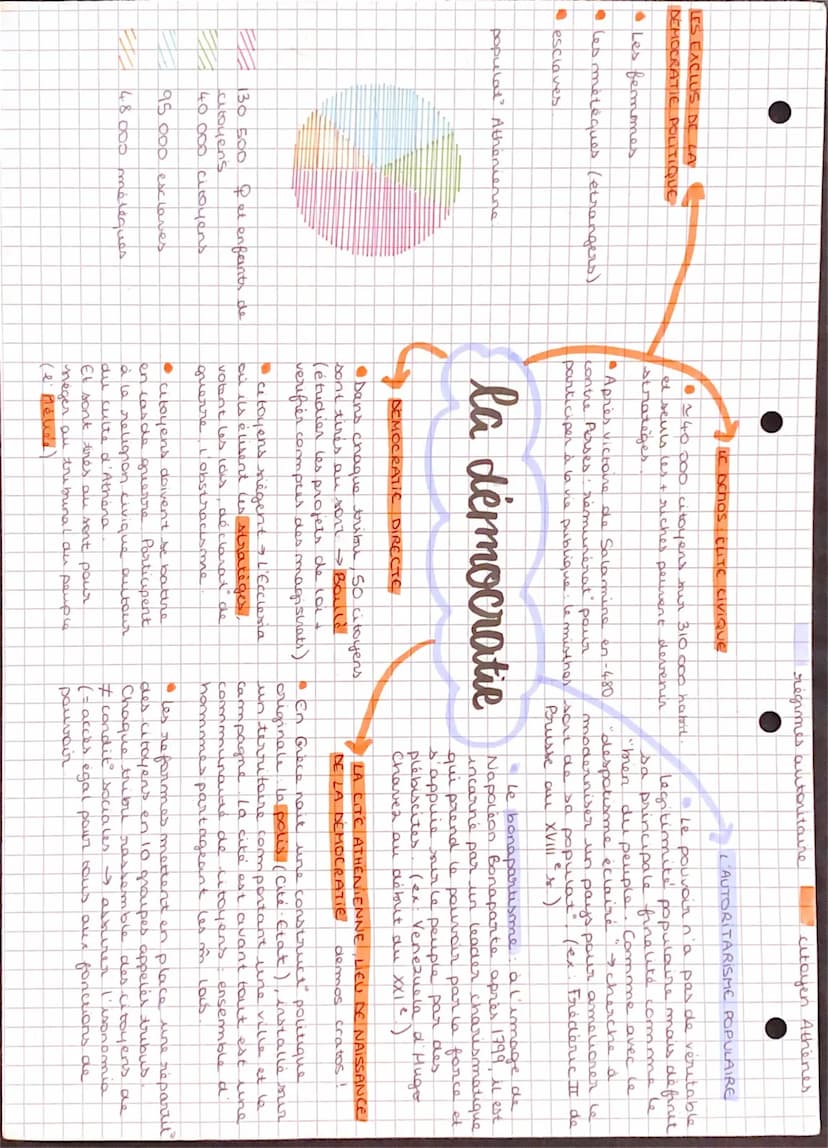 régimes autoritaire
citoyen Athènes
LES EXCLUS DE LA
DÉMOCRATIE POLITIQUE
• Les femmes
• Les métèques (étrangers)
• esclaves
populat° Athénienne
130 500 ♀ et enfants de
citoyens
40 000 citoyens
95 000 esclaves
48 000 métèques
LE DEMOS : ELITE CIVIQUE
• ≃ 40 000 citoyens sur 310 000 habit.
et seuls les + riches peuvent devenir
stratèges.
• Après victoire de Salamine en -480
contre Perses : rémunérat° pour
participer à la vie publique : le misthos
la démocratie
DEMOCRATIE DIRECTE
• Dans chaque tribu, 50 citoyens
sont tirés au sort → Boulè
(étudier les projets de loi +
vérifier comptes des magistrats)
• citoyens siègent → l'Ecclesia
où ils élisent les stratèges,
votent les lois, déclarat° de
guerre, l'obstracisme.
• citoyens doivent se battre
en cas de guerre. Participent
à la religion civique autour
du culte d'Athéna.
Et sont tirés au sort pour
siéger au tribunal du peuple
(l'Heliée)
L'AUTORITARISME POPULAIRE
• Le pouvoir n'a pas de véritable
légitimité populaire mais définit
sa principale finalité comme le
"bien du peuple". Comme avec le
"despotisme éclairé" → cherche à
moderniser un pays pour améliorer le
sort de sa populat°. (ex : Frédéric II de
Prusse au XVIIIe s.)
• Le bonapartisme : à l'image de
Napoléon Bonaparte après 1799, il est
incarné par un leader charismatique
qui prend le pouvoir par la force et
s'appuie sur le peuple par des
plébiscites. (ex : Venezuela d'Hugo
Chavez au début du XXIe)
LA CITÉ ATHENIENNE, LIEU DE NAISSANCE
DE LA DEMOCRATIE demos cratos !
• En Grèce naît une construct° politique
originale : la polis (Cité-Etat), installé sur
un territoire comportant une ville et la
campagne. La cité est avant tout est une
communauté de citoyens : ensemble d'
hommes partageant les m̂ lois.
• Les réformes mettent en place une répartit°
des citoyens en 10 groupes appelés tribus.
Chaque tribu rassemble des citoyens de
≠ condit° sociales → assurer l'isonomia
(= accès égal pour tous aux fonctions de
pouvoir